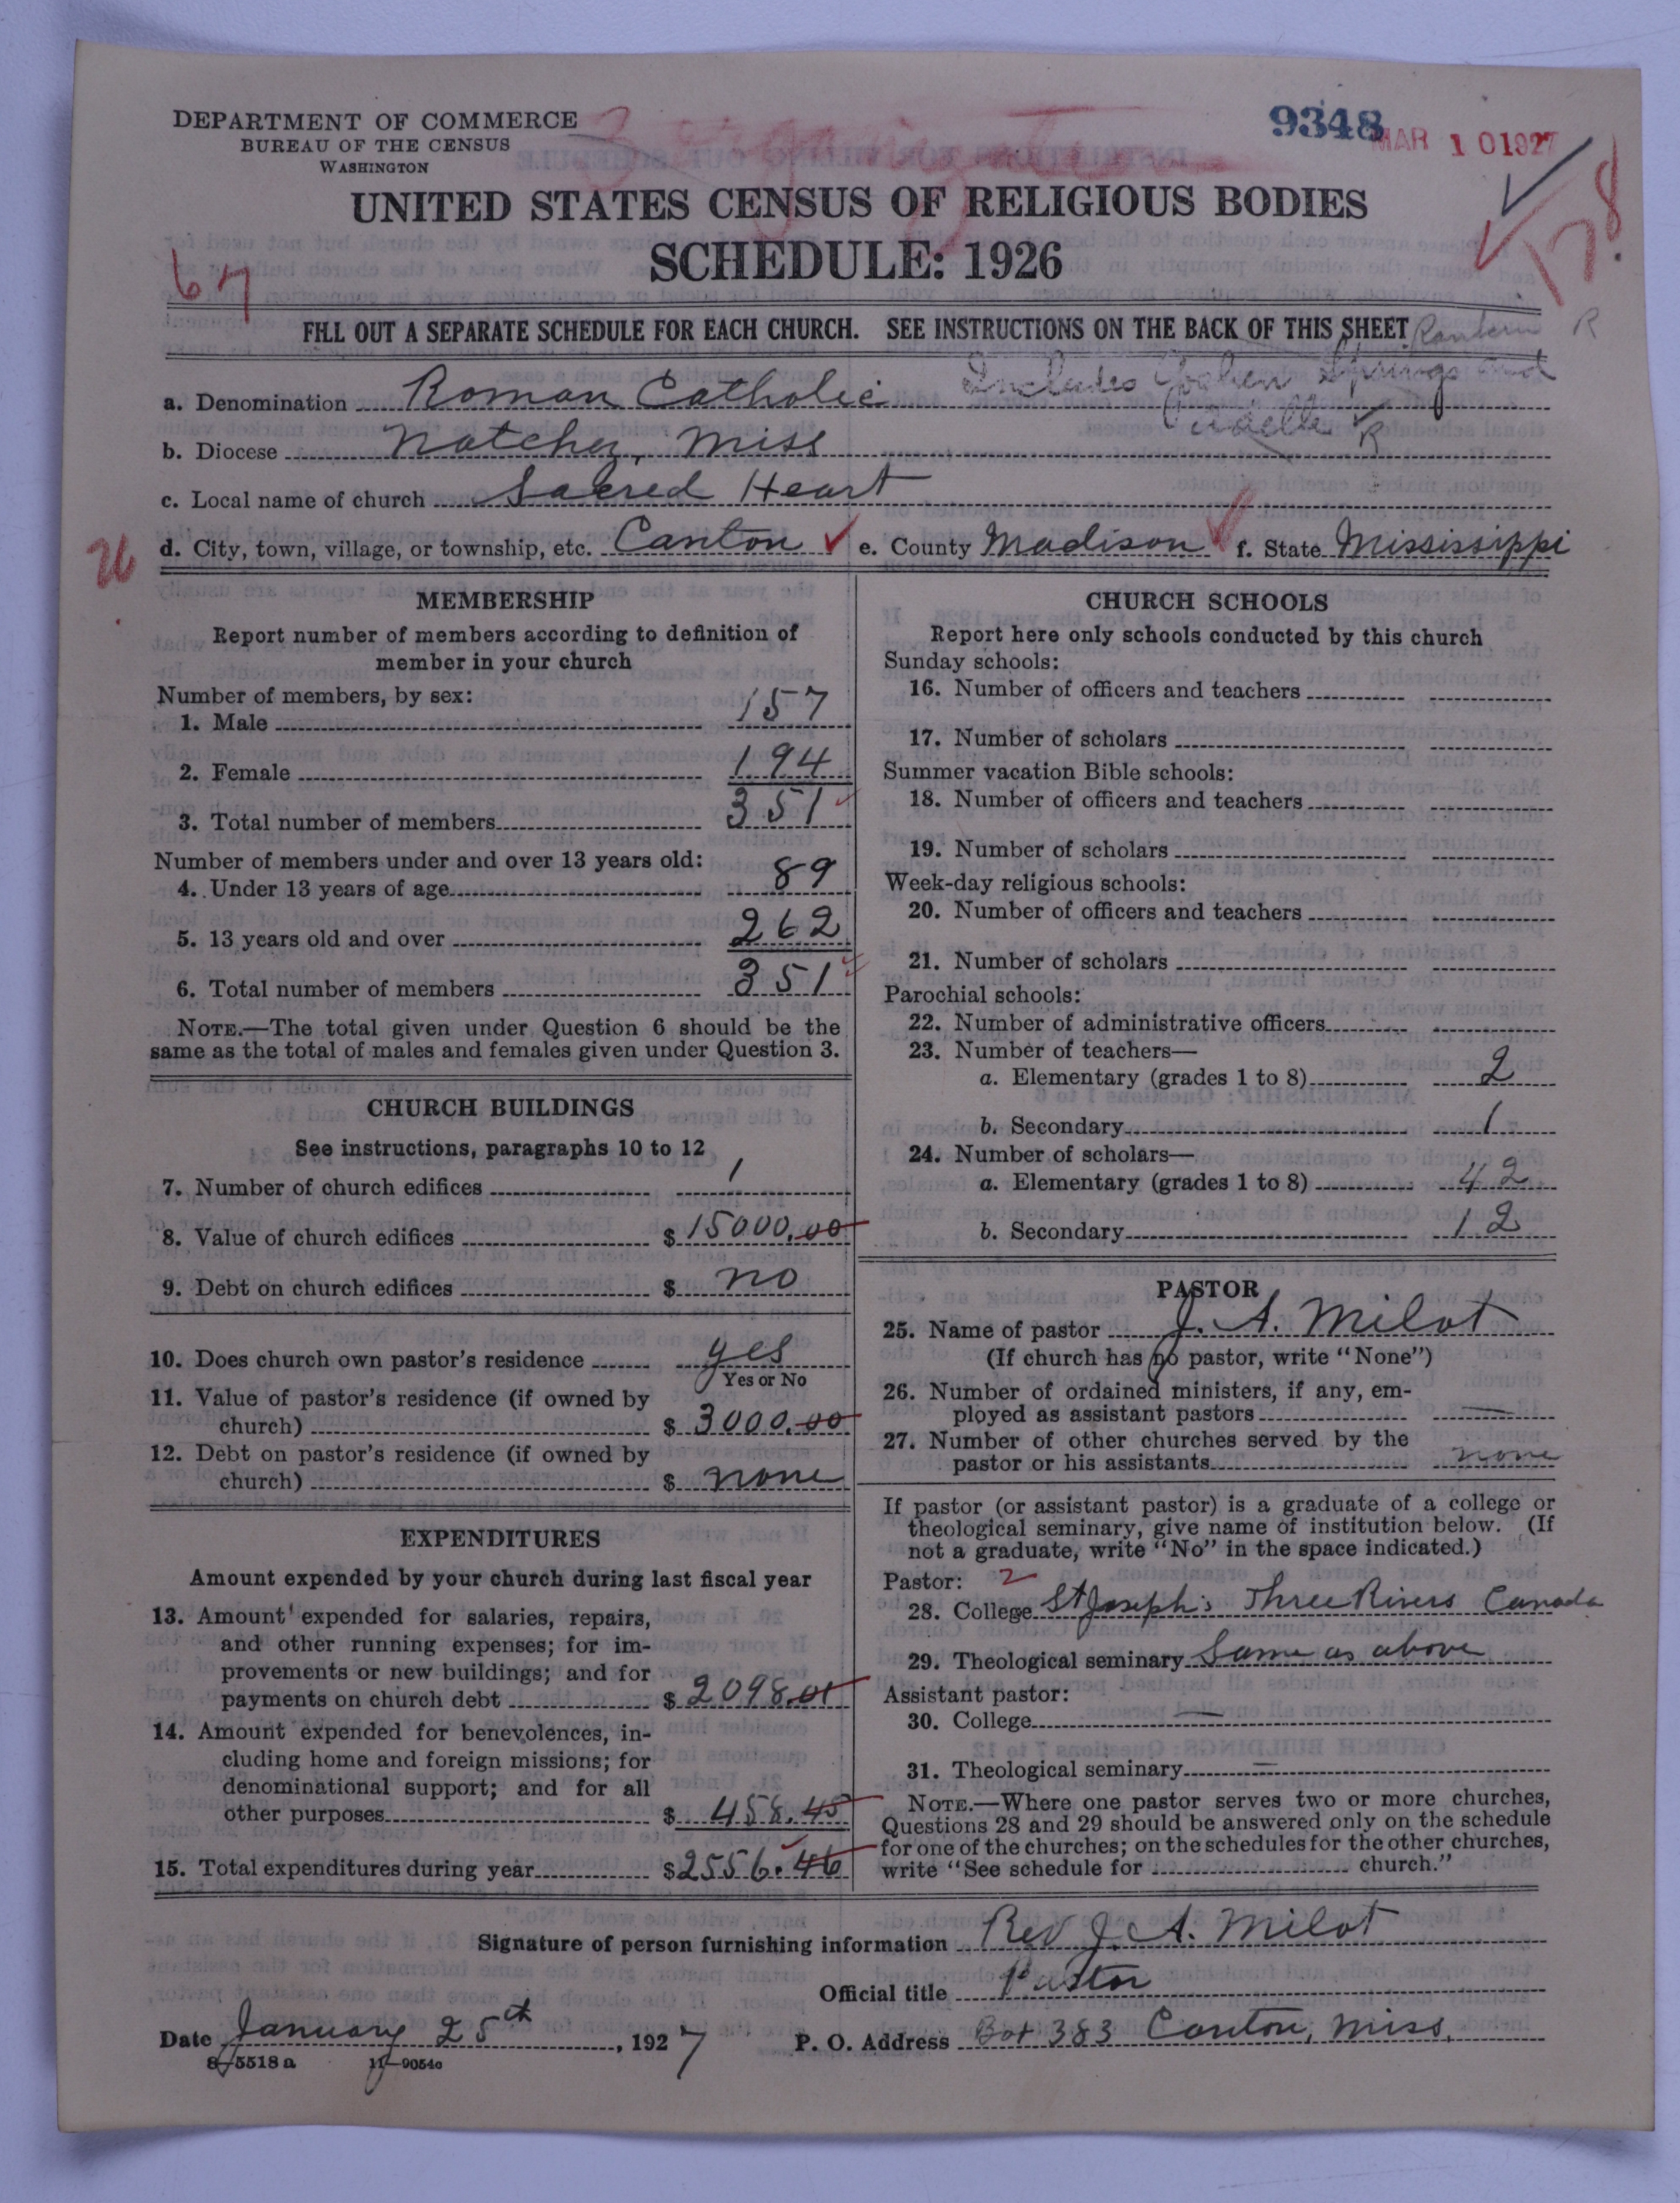 DEPARTMENT OF COMMERCE
BUREAU OF THE CENSUS
WASHINGTON
9348
MAR 10 1927
UNITED STATES CENSUS OF RELIGIOUS BODIES
SCHEDULE: 1926
67
178
FILL OUT A SEPARATE SCHEDULE FOR EACH CHURCH. SEE INSTRUCTIONS ON THE BACK OF THIS SHEET
R
Includes Springs and
a. Denomination Roman Catholic
R
b. Diocese Natchez, Miss
c. Local name of church Sacred Heart
26
d. City, town, village, or township, etc. Canton e. County Madison f. State Mississippi
MEMBERSHIP
Report number of members according to definition of
member in your church
Number of members, by sex:
1. Male 157
2. Female 194
3. Total number of members 351
Number of members under and over 13 years old:
4. Under 13 years of age 89
5. 13 years old and over 262
6. Total number of members 351
NOTE.—The total given under Question 6 should be the
same as the total of males and females given under Question 3.
CHURCH BUILDINGS
See instructions, paragraphs 10 to 12
7. Number of church edifices 1
8. Value of church edifices $ 15000.00
9. Debt on church edifices $ no
10. Does church own pastor's residence yes
Yes or No
11. Value of pastor's residence (if owned by
church) $ 3000.00
12. Debt on pastor's residence (if owned by
church) $ none
EXPENDITURES
Amount expended by your church during last fiscal year
13. Amount expended for salaries, repairs,
and other running expenses; for im-
provements or new buildings; and for
payments on church debt $ 2098.01
14. Amount expended for benevolences, in-
cluding home and foreign missions; for
denominational support; and for all
other purposes $ 458.45
15. Total expenditures during year $ 2556.46
CHURCH SCHOOLS
Report here only schools conducted by this church
Sunday schools:
16. Number of officers and teachers
17. Number of scholars
Summer vacation Bible schools:
18. Number of officers and teachers
19. Number of scholars
Week-day religious schools:
20. Number of officers and teachers
21. Number of scholars
Parochial schools:
22. Number of administrative officers
23. Number of teachers—
a. Elementary (grades 1 to 8) 2
b. Secondary 1
24. Number of scholars—
a. Elementary (grades 1 to 8) 42
b. Secondary 12
PASTOR
25. Name of pastor J. A. Milot
(If church has no pastor, write "None")
26. Number of ordained ministers, if any, em-
ployed as assistant pastors —
27. Number of other churches served by the
pastor or his assistants none
If pastor (or assistant pastor) is a graduate of a college or
theological seminary, give name of institution below. (If
not a graduate, write "No" in the space indicated.)
Pastor: 2
28. College St Joseph's Three Rivers Canada
29. Theological seminary Same as above
Assistant pastor:
30. College —
31. Theological seminary —
NOTE.—Where one pastor serves two or more churches,
Questions 28 and 29 should be answered only on the schedule
for one of the churches; on the schedules for the other churches,
write "See schedule for church."
Signature of person furnishing information Rev J. A. Milot
Official title Pastor
Date January 25th, 1927 P. O. Address Box 383 Canton, Miss.
8—5518 a 11—9054c